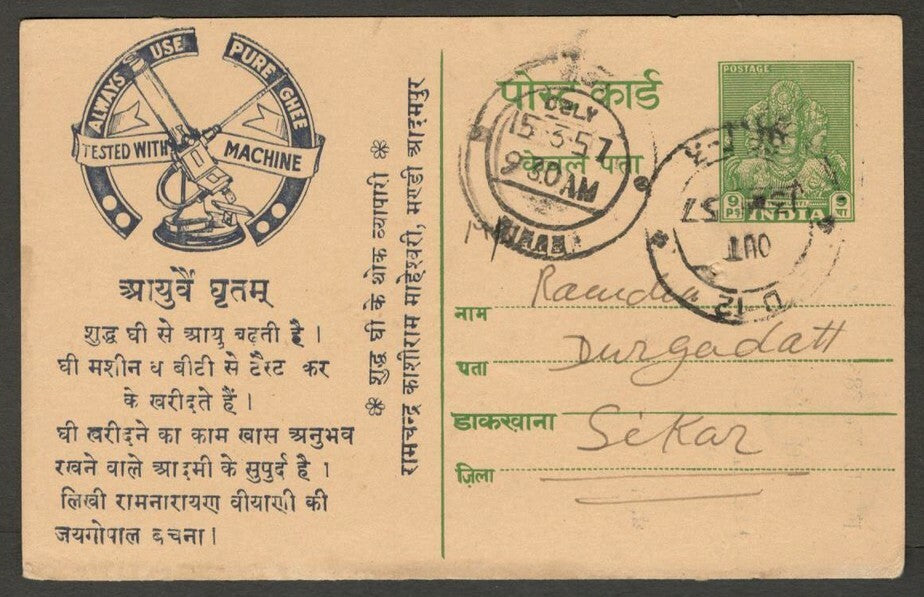 ALWAYS USE PURE GHEE
TESTED WITH MACHINE
आयुर्वै घृतम्
शुद्ध घी से आयु बढ़ती है ।
घी मशीन व बीटी से टैस्ट कर
के खरीदते हैं ।
घी खरीदने का काम खास अनुभव
रखने वाले आदमी के सुपुर्द है ।
लिखी रामनारायण बीयाणी की
जयगोपाल बचना ।
❊ शुद्ध घी के थोक व्यापारी ❊
रामचन्द्र काशीराम माहेश्वरी, मण्डी आदमपुर
पोस्ट कार्ड
केवल पता
POSTAGE
9 Ps INDIA 9 पा
15·3·57
9·30AM
OUT
D-12
नाम Ramdin
पता Durgadatt
डाकखाना Sikar
ज़िला